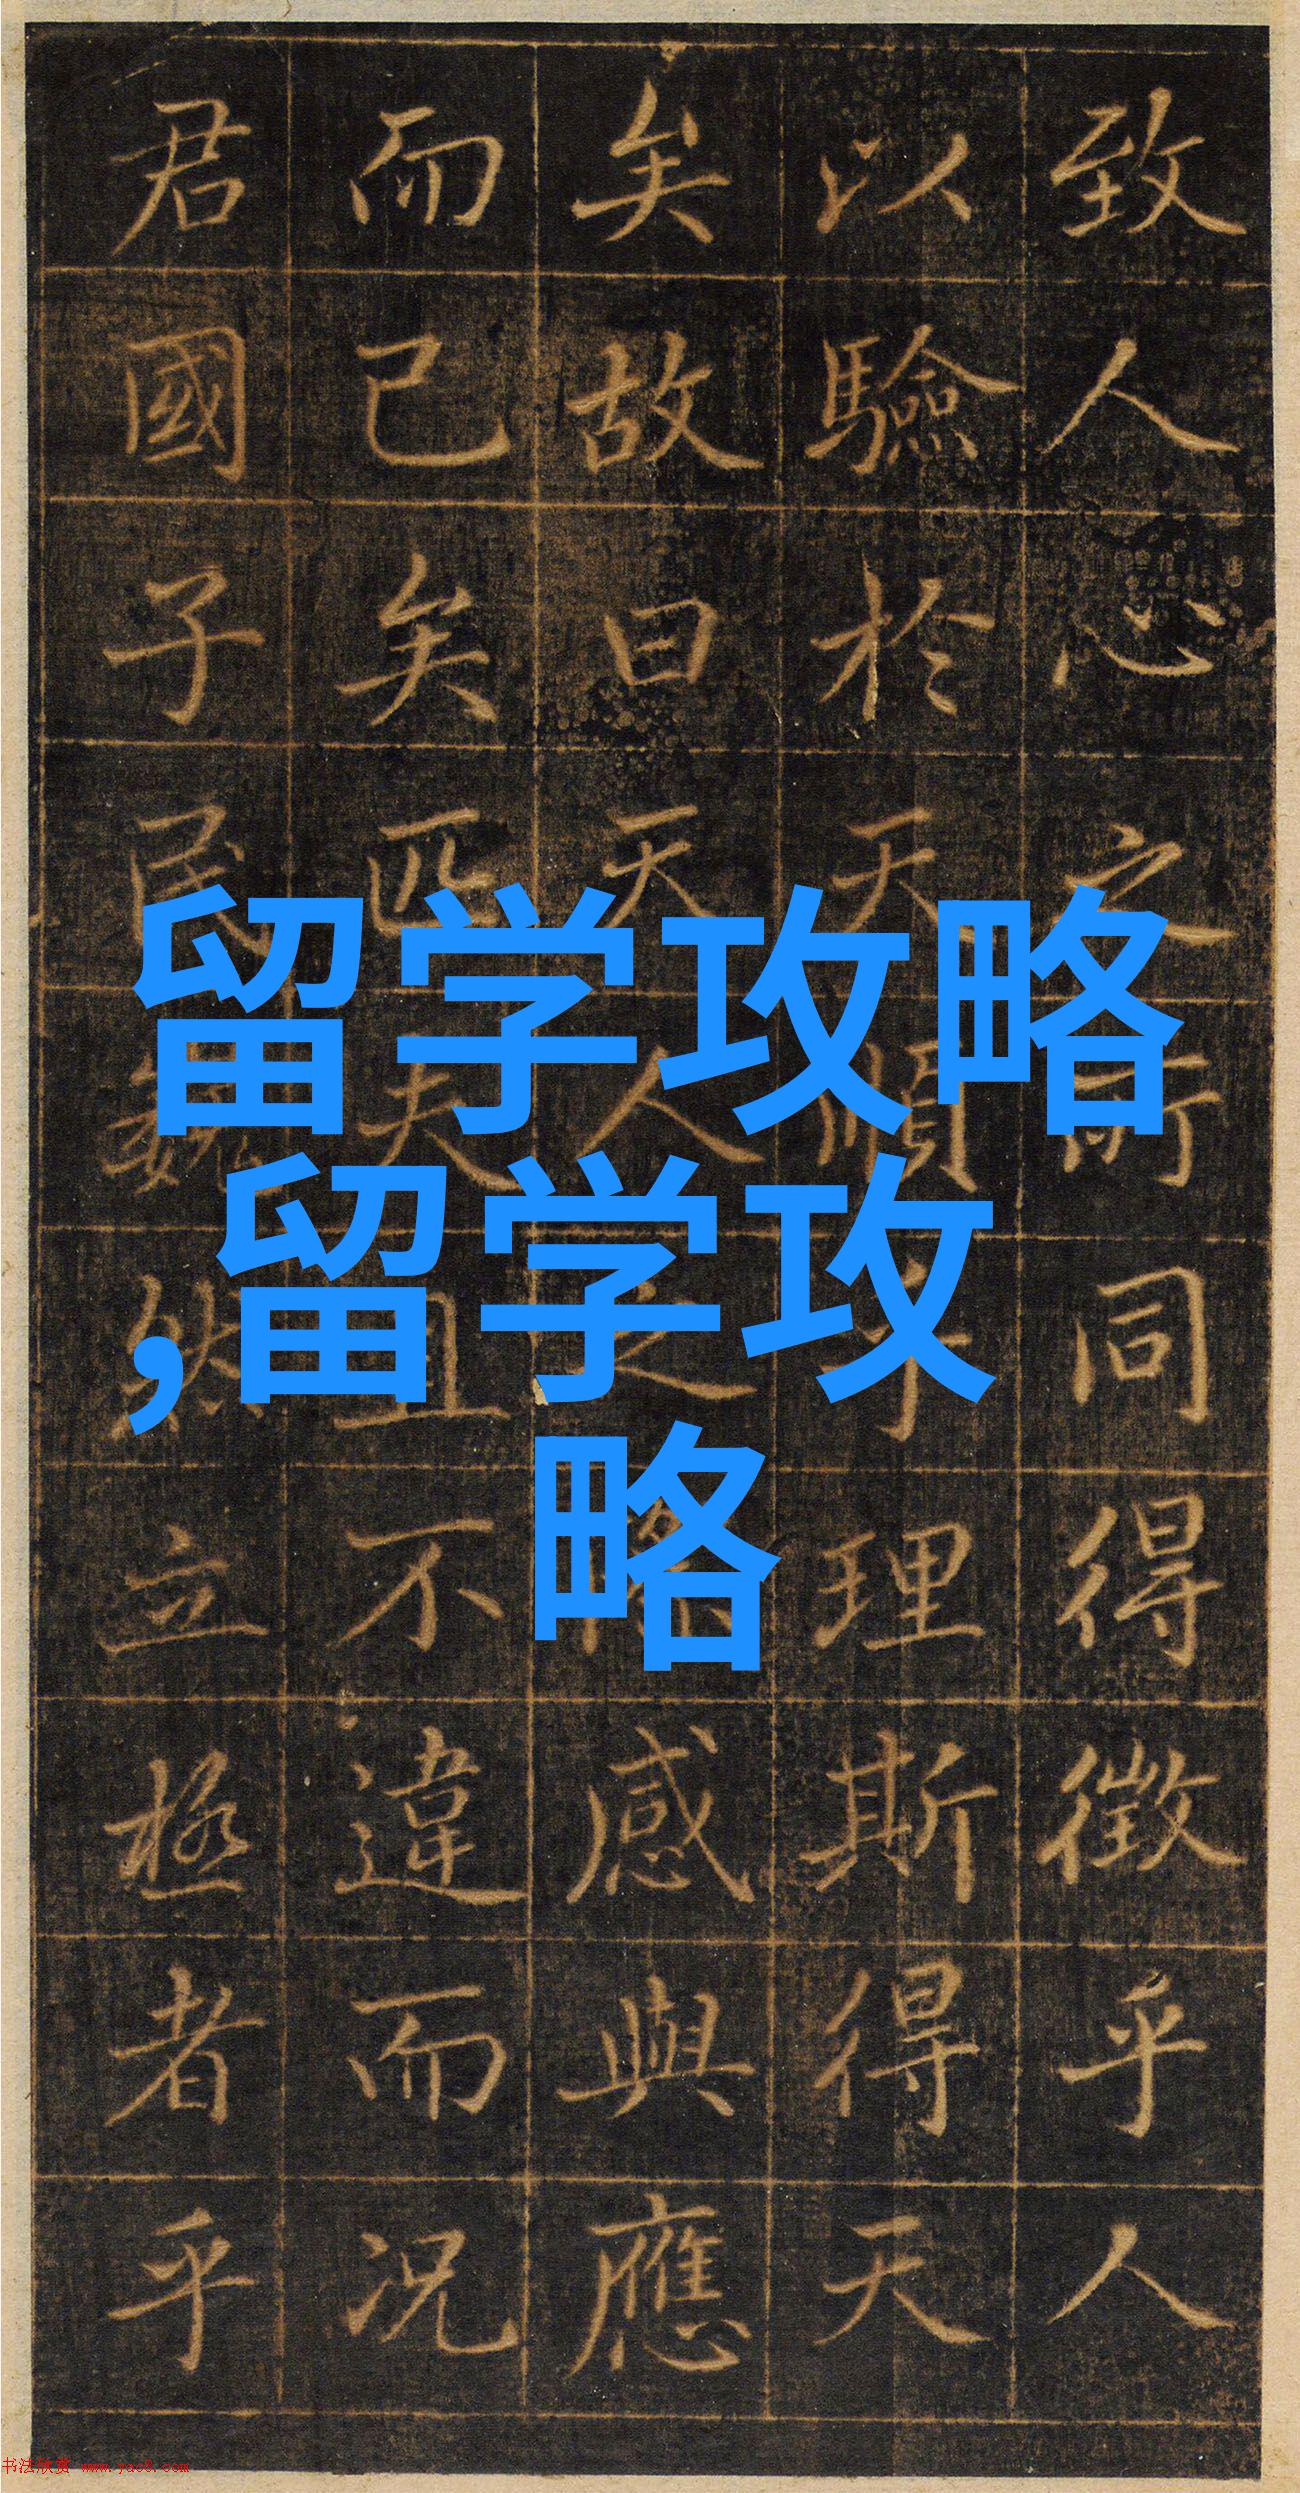 致人心之所同得徵乎人
以驗於天順乎理斯得天
矣故曰天人之際感與應
而已矣匹夫且不違而況
君國子民巍然立極者乎
留学攻略
,留学攻
略
书法欣赏 www.yac8.com